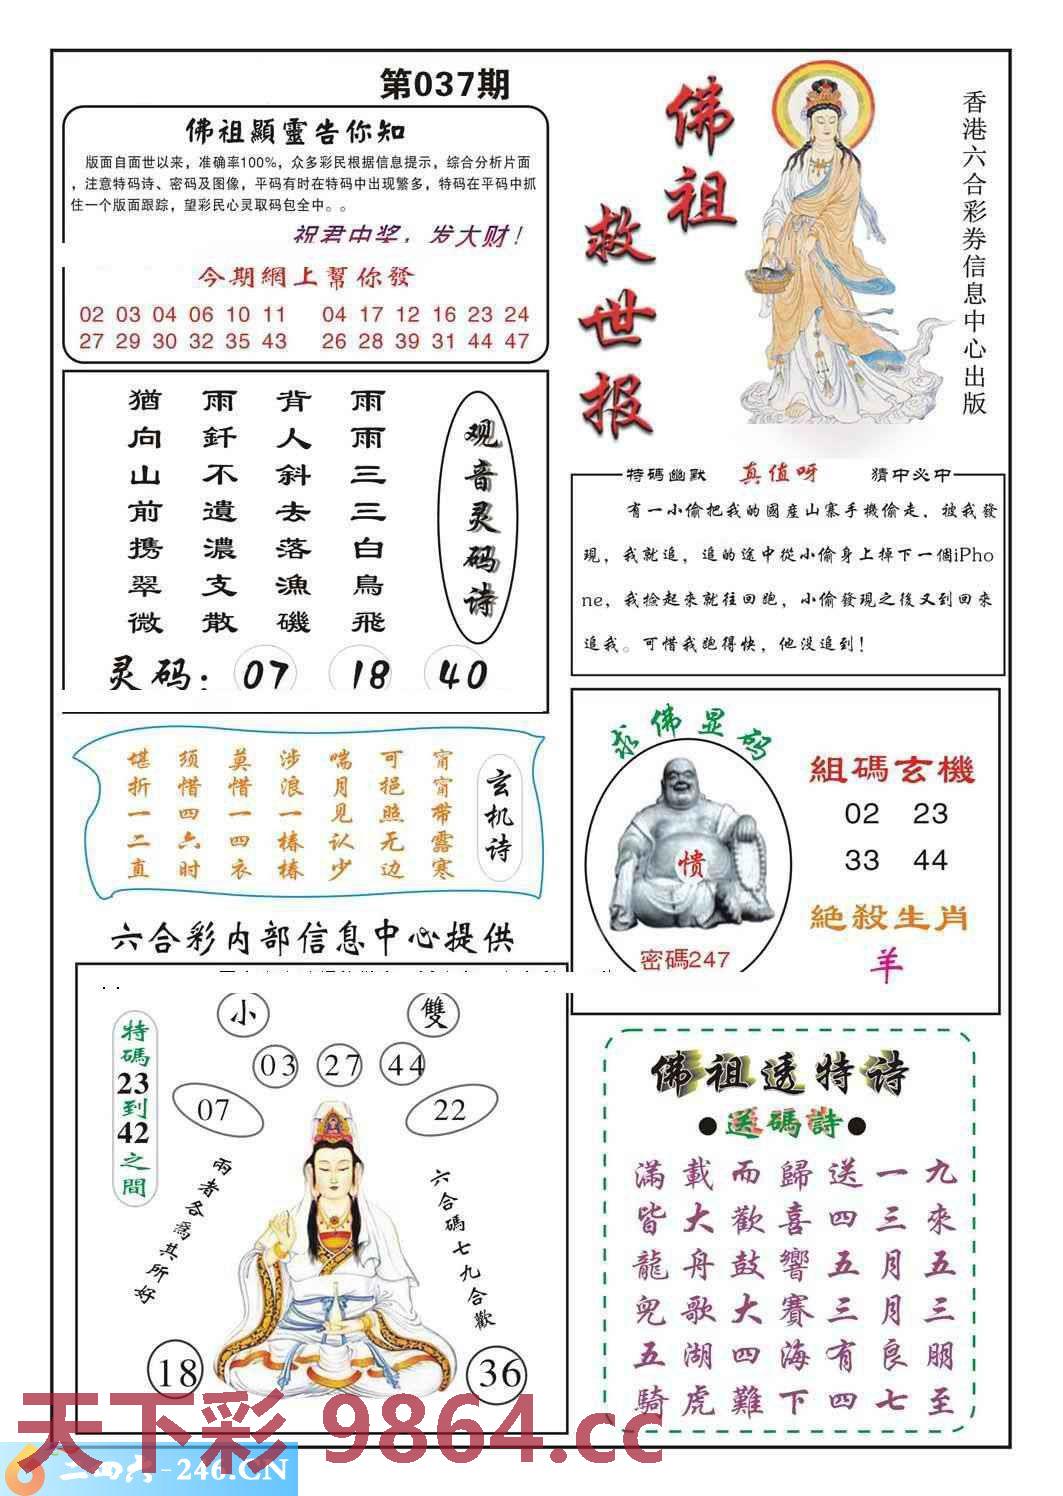 第037期
佛祖顯靈告你知
版面自面世以来，准确率100%，众多彩民根据信息提示，综合分析片面
，注意特码诗、密码及图像，平码有时在特码中出现繁多，特码在平码中抓
住一个版面跟踪，望彩民心灵取码包全中。。
祝君中奖，发大财！
今期網上幫你發
02 03 04 06 10 11 04 17 12 16 23 24
27 29 30 32 35 43 26 28 39 31 44 47
佛祖
救世报
香港六合彩券信息中心出版
观音灵码诗
雨雨三三白鳥飛
背人斜去落漁磯
雨釺不遺濃支散
猶向山前携翠微
灵码：07 18 40
特碼幽默 真值呀 猜中必中
有一小偷把我的國産山寨手機偷走，被我發
現，我就追，追的途中從小偷身上掉下一個iPho
ne，我捡起來就往回跑，小偷發現之後又到回來
追我。可惜我跑得快，他没追到！
玄机诗
甯甯带露寒
可挹照无边
喘月见认少
涉浪一椿椿
莫惜一四衣
须惜四六时
堪折一二直
求佛显码
愦
密碼247
組碼玄機
02 23
33 44
絶殺生肖
羊
六合彩内部信息中心提供
小 雙
03 27 44
07 22
特碼23到42之間
兩者各爲其所好
六合碼七九合歡
18 36
佛祖透特诗
●送碼詩●
九來五三朋至
一三月月良七
送四五三有四
歸喜響賽海下
而歡鼓大四難
載大舟歌湖虎
滿皆龍兜五騎
天下彩 9864.cc
二四六-246.CN